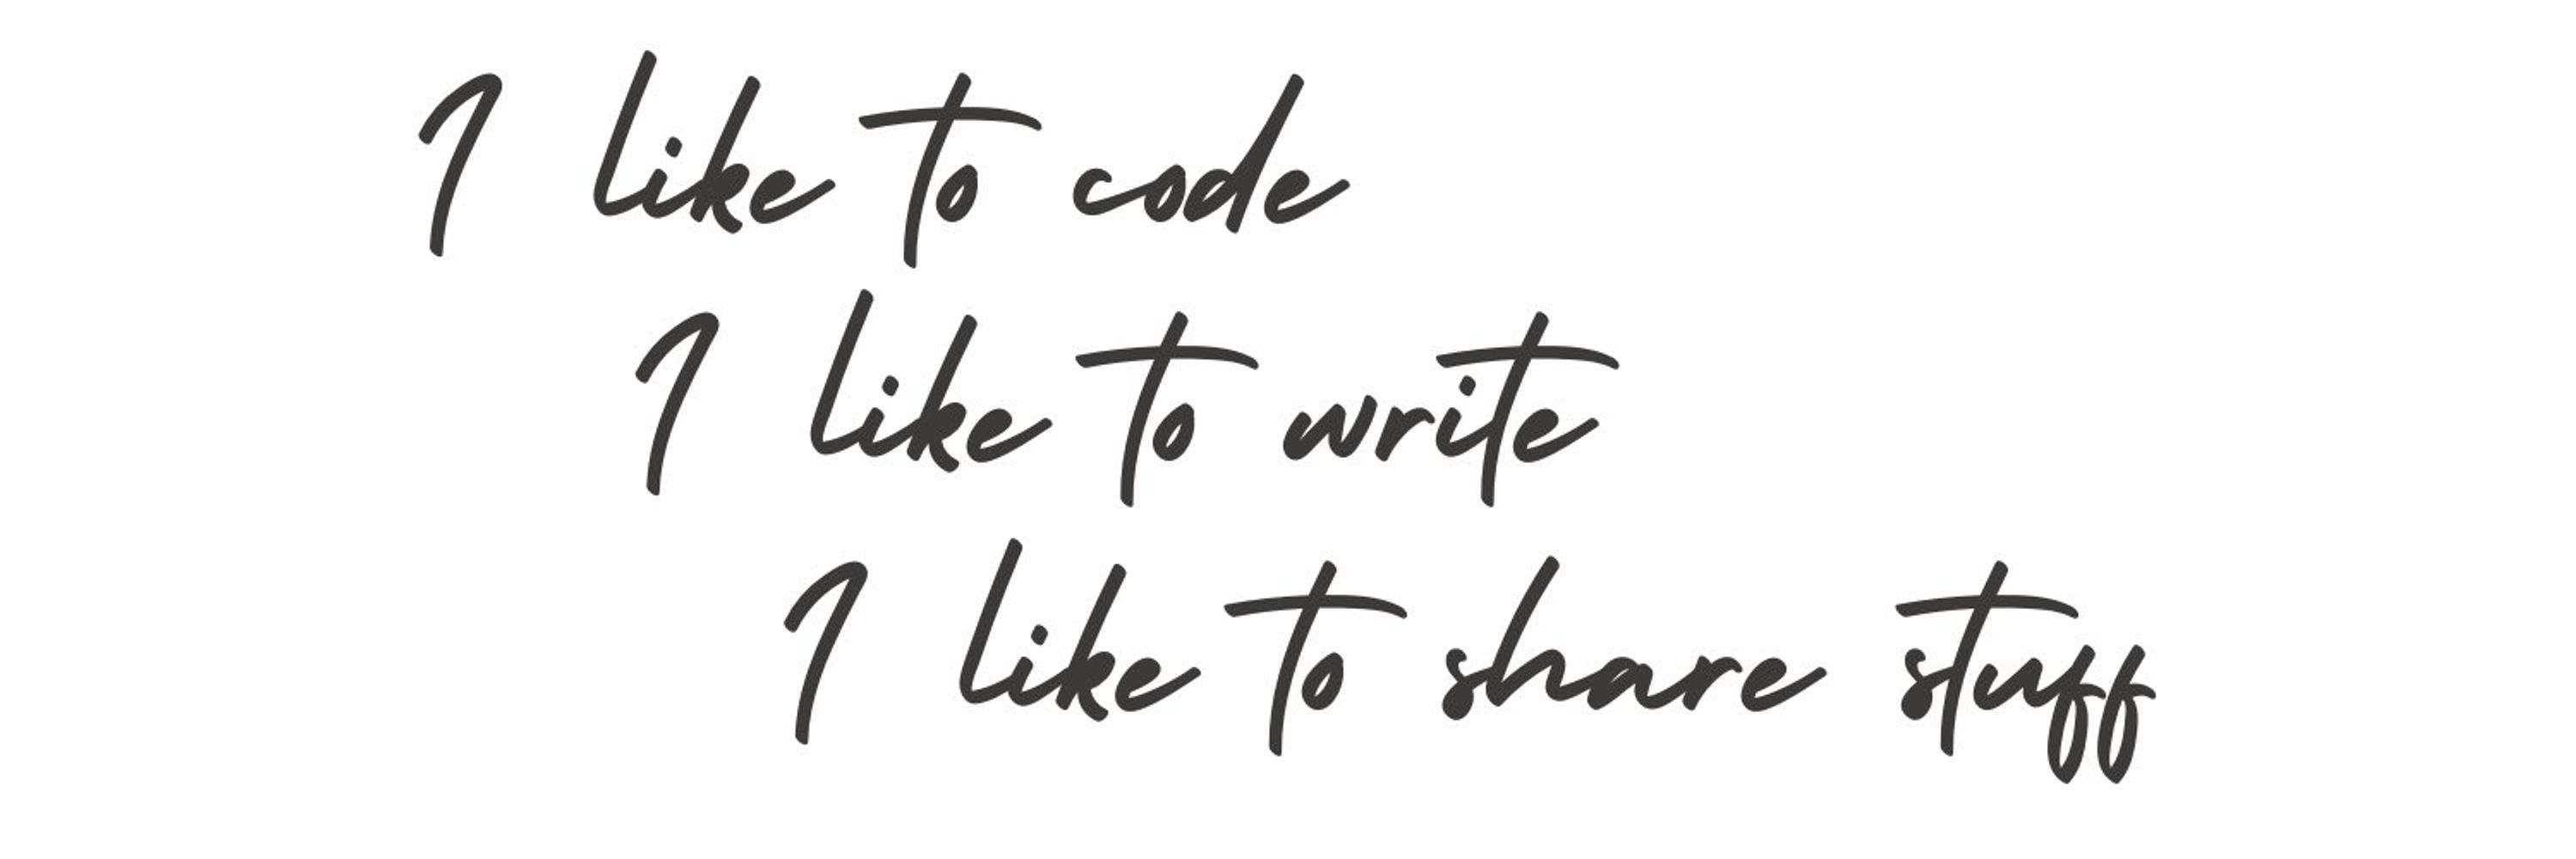 I like to code
I like to write
I like to share stuff